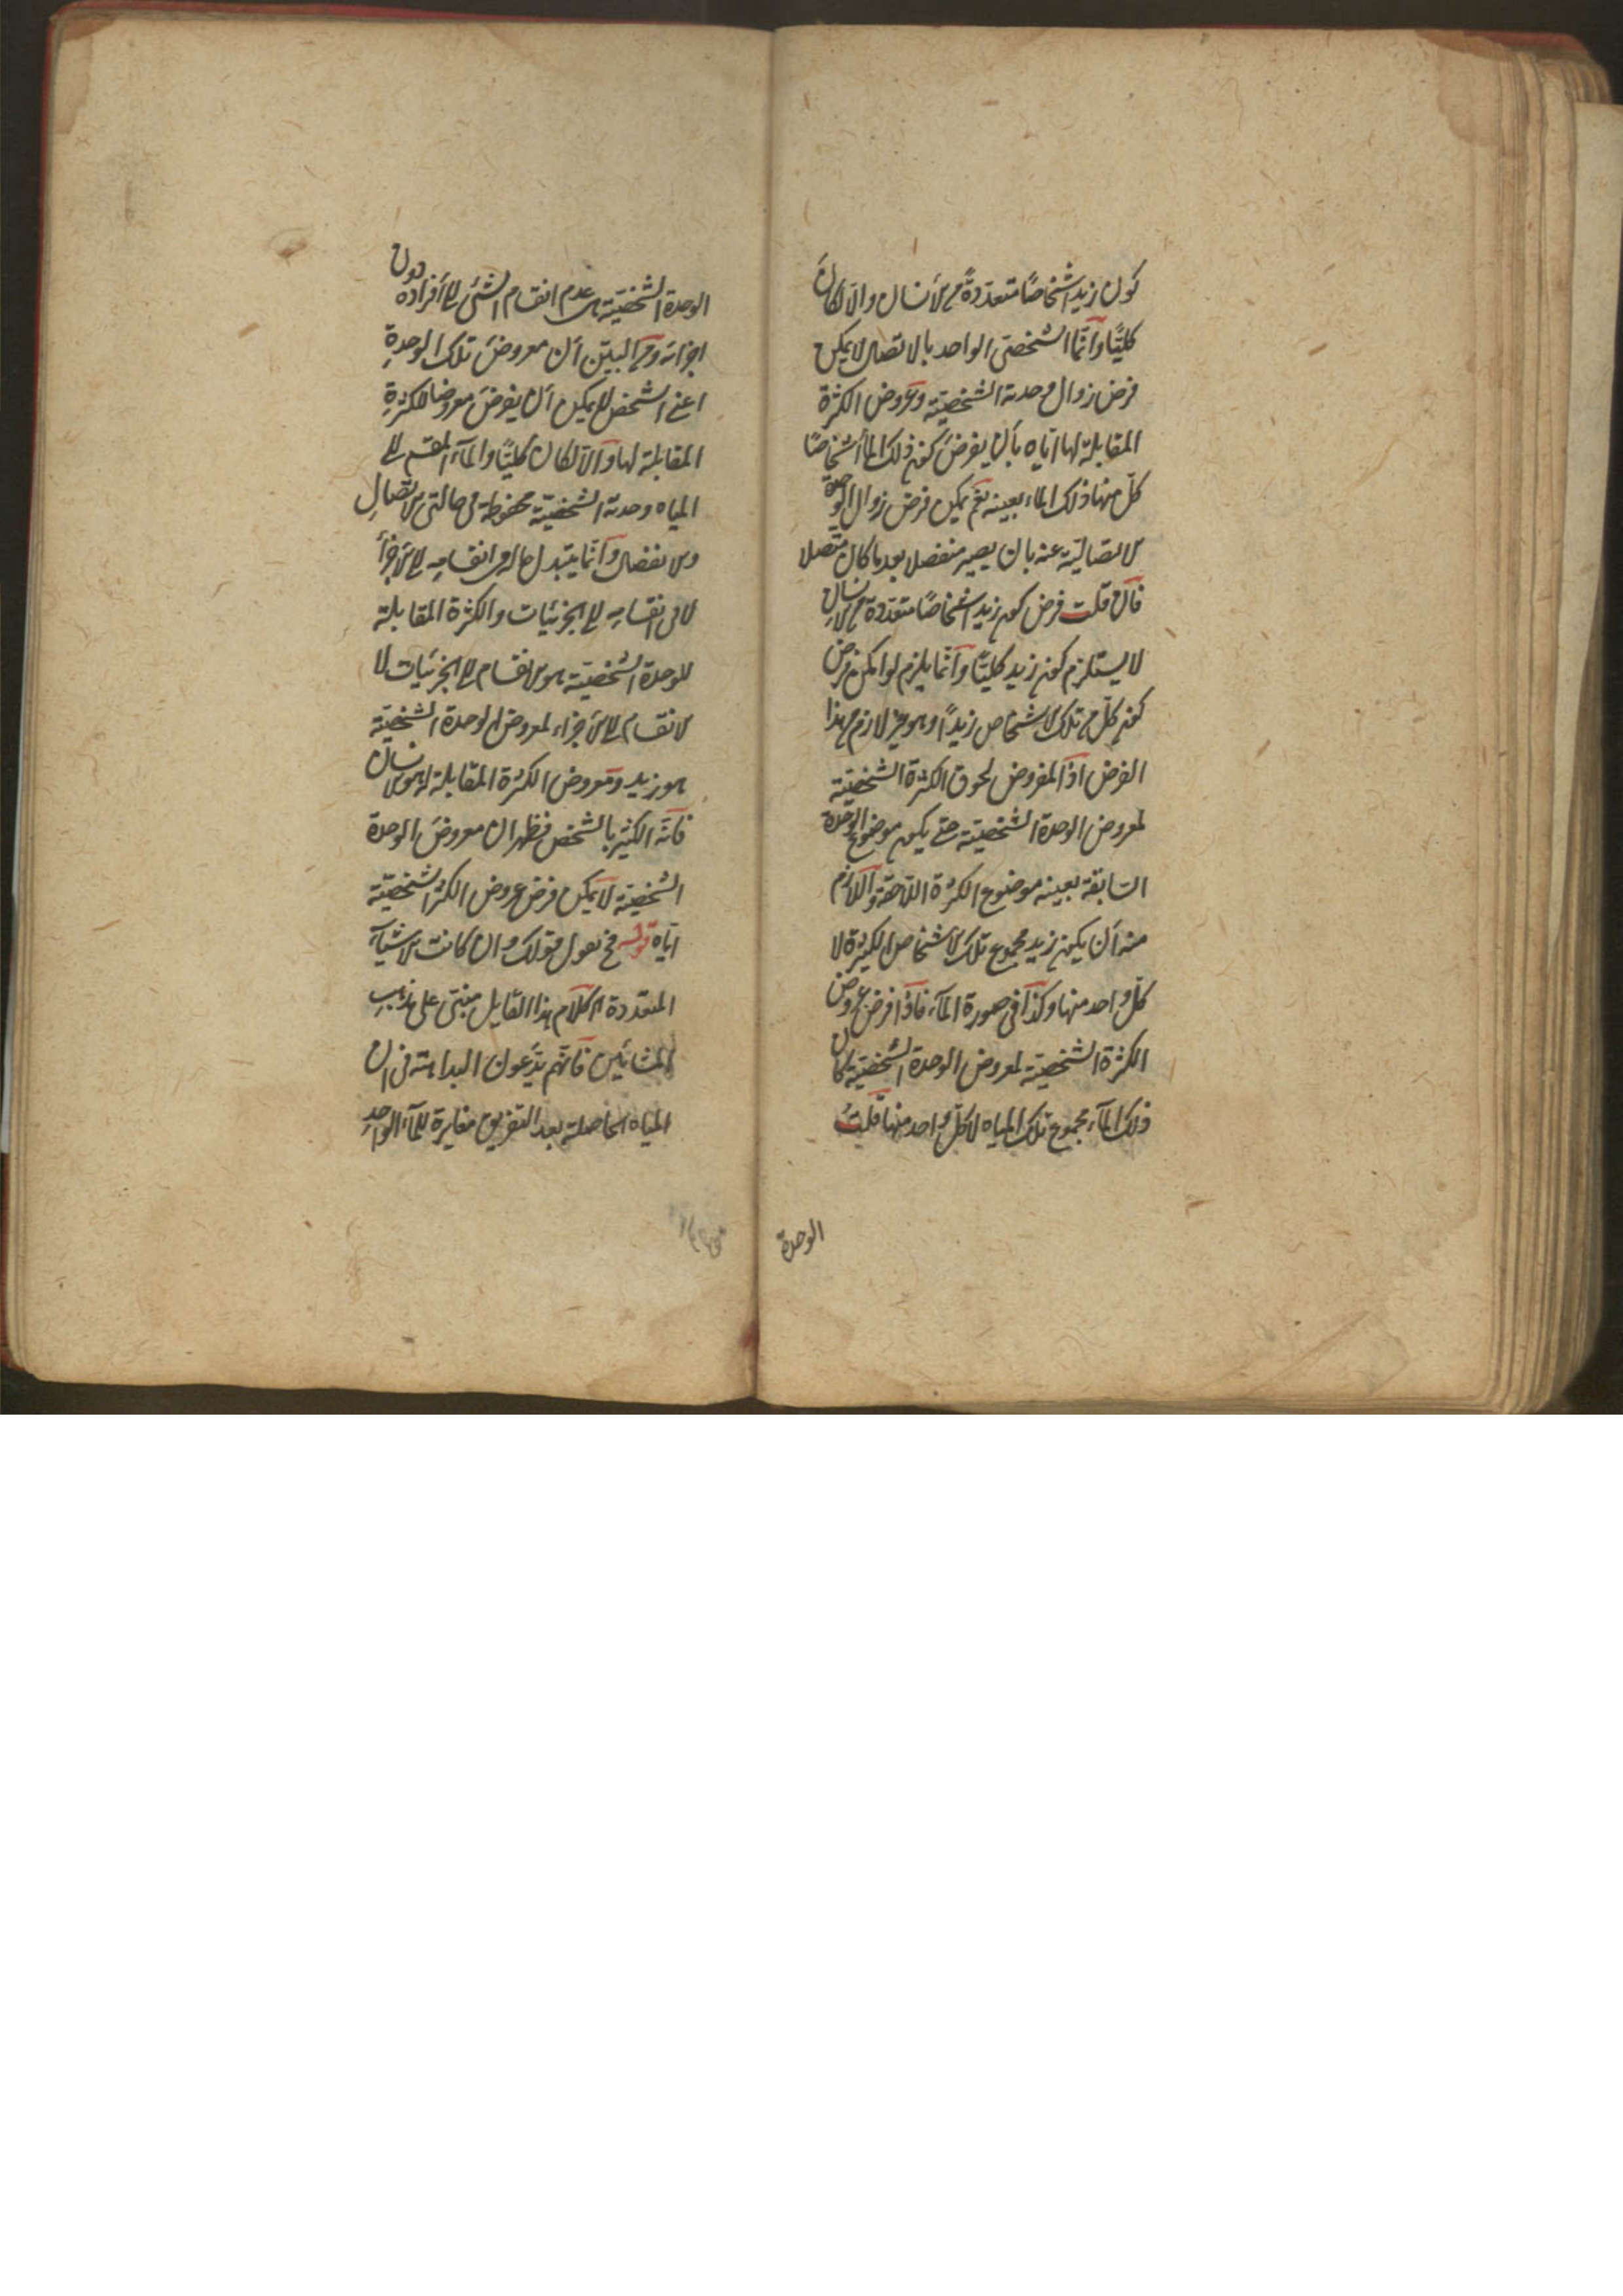 كون زيد اشخاصًا متعددةً من الأنسان والا لكان
كليًّا وانّما الشخصى الواحد بالاتصال لا يمكن
فرض زوال وحدته الشخصيّة وعروض الكثرة
المقابلة لها اياه بأن يفرض كون ذلك الماء أشخاصًا
كلّ منها ذلك الماء بعينه نعم يمكن فرض زوال الوحدة
الاتصاليّة عنه بان يصير منفصلا بعد ما كان متصلا
فان قلت فرض كون زيد اشخاصًا متعددة من الانسان
لا يستلزم كون زيد كليّا وانّما يلزم لو امكن فرض
كون كلّ من تلك الاشخاص زيدًا وهو غير لازم من هذا
الفرض اذ المفروض لحوق الكثرة الشخصيّة
لمعروض الوحدة الشخصيّة حتى يكون موضوع الوحدة
السّابقة بعينه موضوع الكثرة اللّاحقة واللّازم
منه أن يكون زيد مجموع تلك الأشخاص الكثيرة لا
كلّ واحد منها وكذا فى صورة الماء فاذا فرض عروض
الكثرة الشخصيّة لمعروض الوحدة الشخصيّة كان
ذلك الماء مجموع تلك المياه لا كلّ واحد منها قلت
الوحدة
الوحدة الشخصيّة هى عدم انقسام الشئ الى أفراده دون
اجزائه ومن البيّن أن معروض تلك الوحدة
اعنى الشخص لا يمكن أن يفرض معروضا للكثرة
المقابلة لها والّا لكان كليًّا والماء المنقسم الى
المياه وحدته الشخصيّة محفوظة فى حالتى الاتصال
والانفصال وانّما يتبدل حاله فى انقسامه الى الأجزاء
لا فى انقسامه الى الجزئيات والكثرة المقابلة
للوحدة الشخصيّة هو الانقسام الى الجزئيات لا
الانقسام الى الأجزاء لمعروض الوحدة الشخصيّة
هو زيد ومعروض الكثرة المقابلة لها هو الانسان
فانّه الكثير بالشخص فظهر ان معروض الوحدة
الشخصيّة لا يمكن فرض عروض الكثرة الشخصيّة
اياه قوله فح نقول قولك وان كانت الاشياء
المتعددة اه كلام هذا القايل مبنىّ على مذهب
المشائين فانّهم يدّعون البداهة فى ان
المياه الحاصلة بعد التفريق مغايرة للماء الواحد